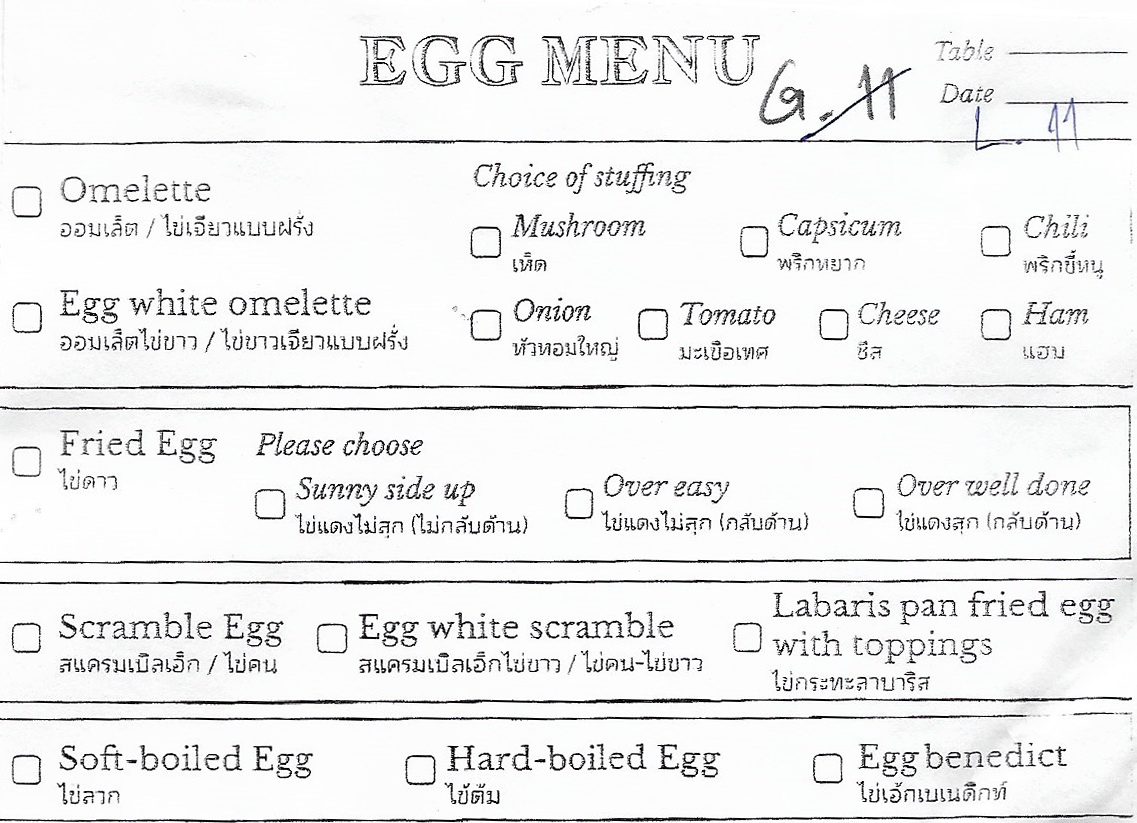 EGG MENU
Table
Date
G. 11
L. 11
Omelette
ออมเล็ต / ไข่เจียวแบบฝรั่ง
Egg white omelette
ออมเล็ตไข่ขาว / ไข่ขาวเจียวแบบฝรั่ง
Choice of stuffing
Mushroom Capsicum Chili
เห็ด พริกหยวก พริกขี้หนู
Onion Tomato Cheese Ham
หัวหอมใหญ่ มะเขือเทศ ชีส แฮม
Fried Egg Please choose
ไข่ดาว
Sunny side up Over easy Over well done
ไข่แดงไม่สุก (ไม่กลับด้าน) ไข่แดงไม่สุก (กลับด้าน) ไข่แดงสุก (กลับด้าน)
Scramble Egg Egg white scramble Labaris pan fried egg
with toppings
สแครมเบิลเอ้ก / ไข่คน สแครมเบิลเอ้กไข่ขาว / ไข่คน-ไข่ขาว ไข่กระทะลาบาริส
Soft-boiled Egg Hard-boiled Egg Egg benedict
ไข่ลวก ไข่ต้ม ไข่เอ้กเบเนดิกท์